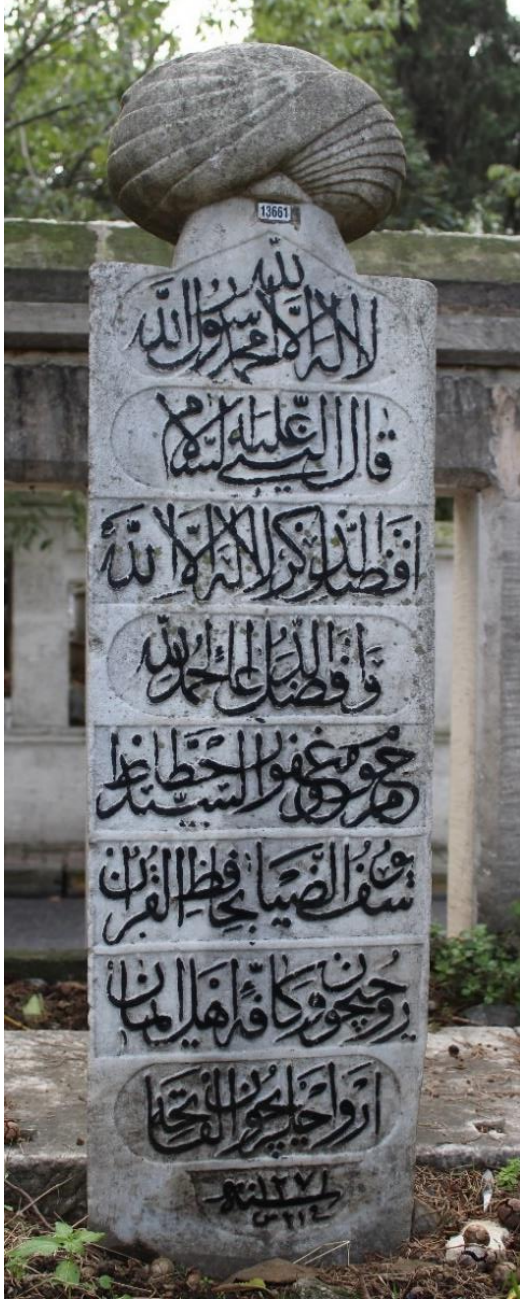 13661
لا اله الا الله محمد رسول الله
قال النبي عليه السلام
افضل الذكر لا اله الا الله
وافضل الدعاء الحمد لله
مرحوم و مغفور خطاط السيد
يوسف الضيا حافظ القران
روحيچون و كافة اهل ايمان
ارواحيچون الفاتحه
سنه ١٢٧١